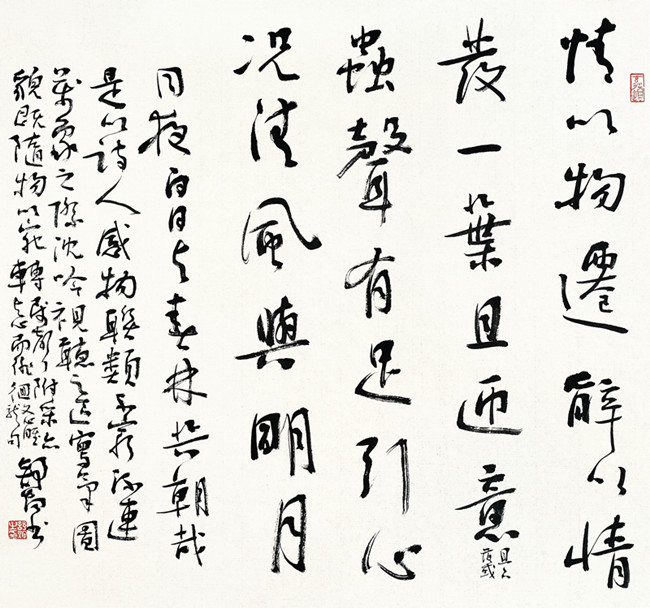 情以物遷辭以情
發一葉且迎意
且下落或
蟲聲有足引心
況清風與明月
同夜白日与春林共朝哉
是以詩人感物聯類不窮流連
萬象之際沈吟視聽之區寫氣圖
貌既隨物以宛轉屬聲附采亦与心而徘徊文心雕龍句
書